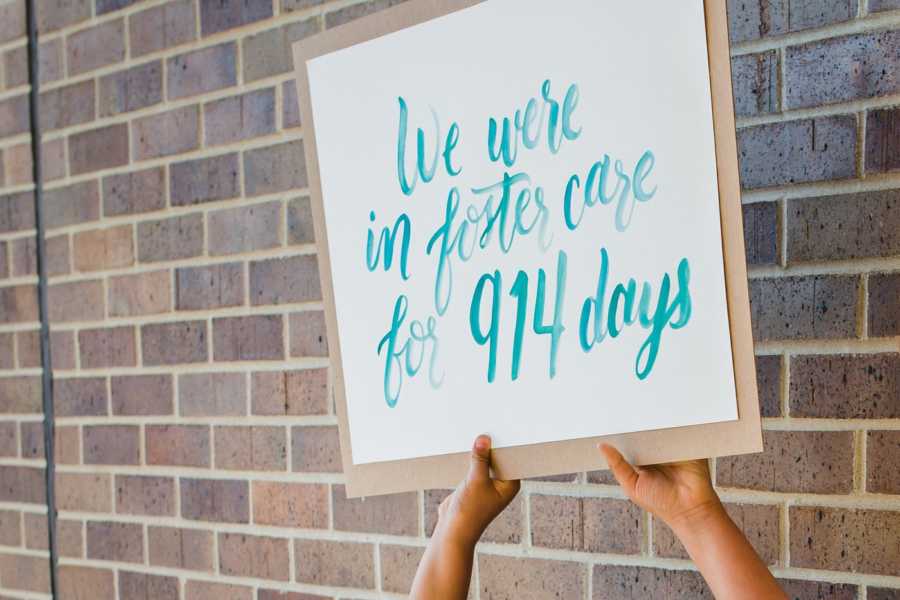 We were
in foster care
for 914 days